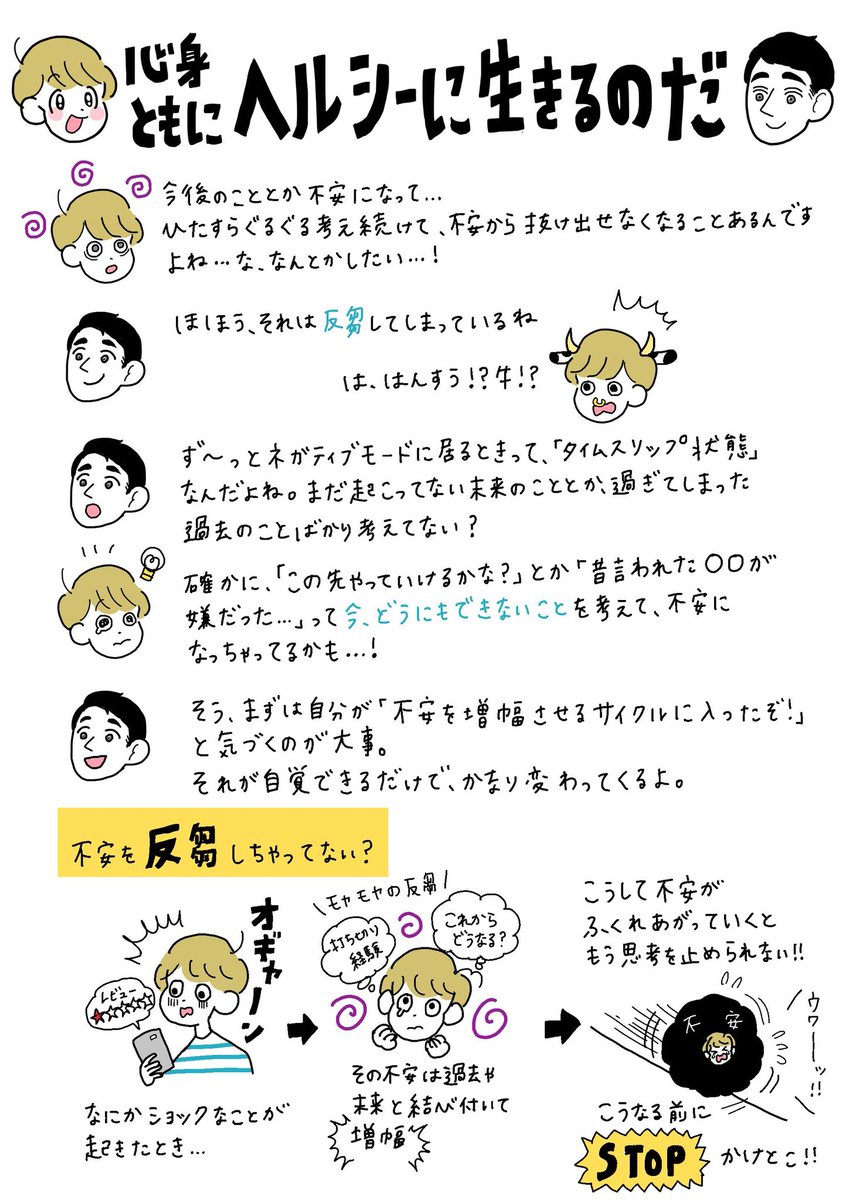 心身
ともに
ヘルシーに生きるのだ
今後のこととか不安になって…
ひたすらぐるぐる考え続けて、不安から抜け出せなくなることあるんです
よね…な、なんとかしたい…！
ほほう、それは反芻してしまっているね
は、はんすう!?牛!?
ず〜っとネガティブモードに居るときって、「タイムスリップ状態」
なんだよね。まだ起こってない未来のこととか、過ぎてしまった
過去のことばかり考えてない？
確かに、「この先やっていけるかな？」とか「昔言われた〇〇が
嫌だった…」って今、どうにもできないことを考えて、不安に
なっちゃってるかも…！
そう、まずは自分が「不安を増幅させるサイクルに入ったぞ！」
と気づくのが大事。
それが自覚できるだけで、かなり変わってくるよ。
不安を反芻しちゃってない？
オギャーン
レビュー
★☆☆☆☆
なにかショックなことが
起きたとき…
モヤモヤの反芻
打ちとかり
経験
これから
どうなる？
その不安は過去や
未来と結び付いて
増幅
こうして不安が
ふくれあがっていくと
もう思考を止められない!!
不安
ウワーッ!!
こうなる前に
STOP かけとこ!!